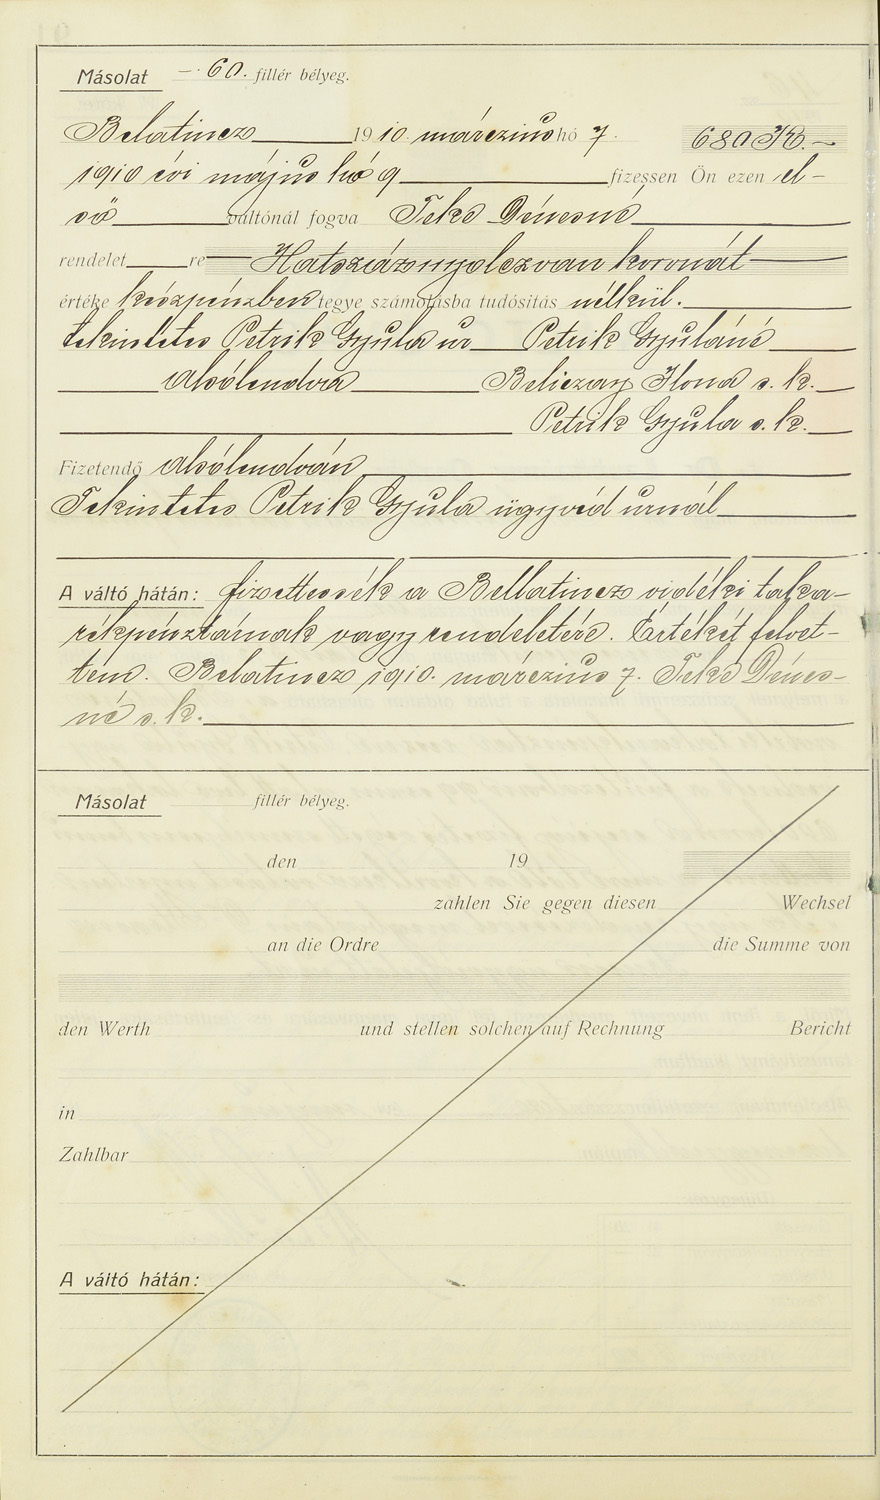 Másolat — 60. fillér bélyeg.
Belatincz 1910 márczius hó 7. 680 K. —
1910 évi május hó 9 fizessen Ön ezen el-
ső váltónál fogva Teke Dénesné
rendelet re Hatszáznyolczvan koronát
értéke készpénzben tegye számolásba tudósítás nélkül.
Tekintetes Petrik Gyula ur Petrik Gyuláné
Alsólendva Beliczay Ilona s. k.
Petrik Gyula s. k.
Fizetendő Alsólendván
Tekintetes Petrik Gyula ügyvéd urnál
A váltó hátán: fizettessék a Bellatincz vidéki taka-
rékpénztárnak vagy rendeletére. Értékét felvet-
tem. Belatincz 1910. márczius 7. Teke Dénes-
né s. k.
Másolat fillér bélyeg.
den 19
zahlen Sie gegen diesen Wechsel
an die Ordre die Summe von
den Werth und stellen solchen auf Rechnung Bericht
in
Zahlbar
A váltó hátán: